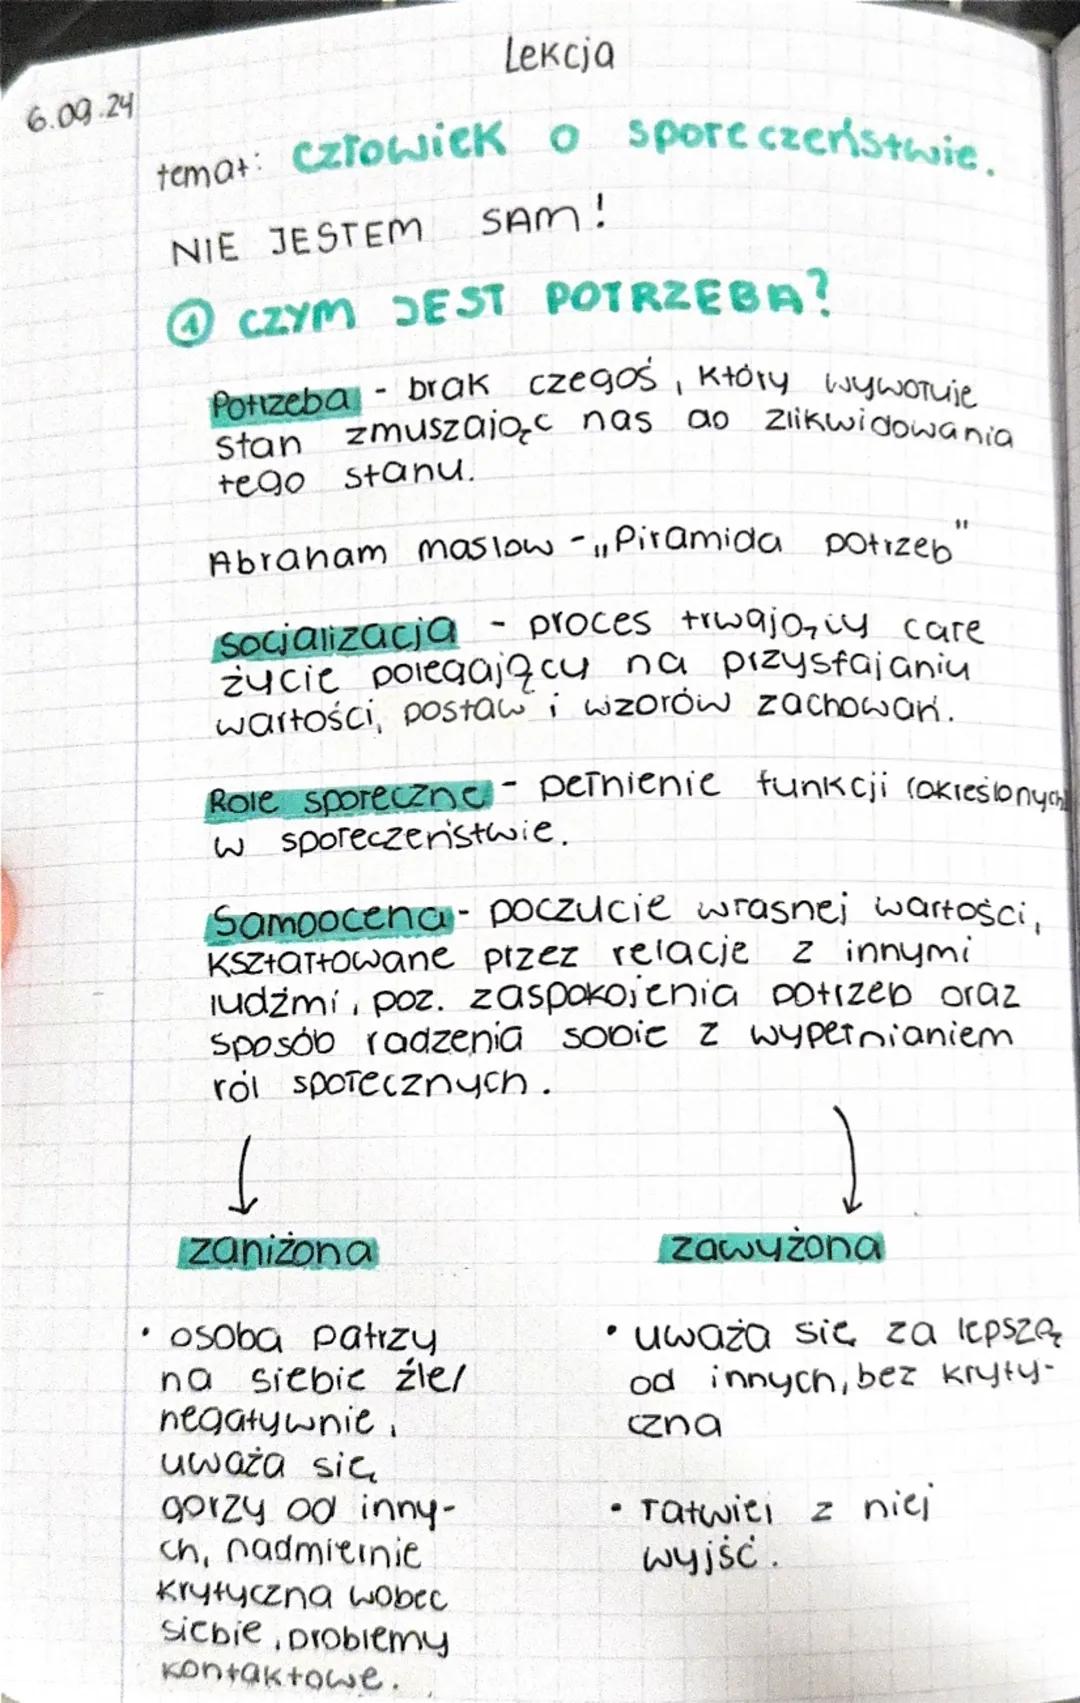 Lekcja
6.09.24
temat: człowiek o społeczeństwie.
NIE JESTEM SAM!
① CZYM JEST POTRZEBA?
Potrzeba - brak czegoś, który wywołuje
stan zmuszając nas do zlikwidowania
tego stanu.
Abraham maslow - „Piramida potrzeb"
socjalizacja - proces trwający całe
życie polegający na przysfajaniu
wartości, postaw i wzorów zachowań.
Role społeczne - pełnienie funkcji (określonych)
w społeczeństwie.
Samoocena - poczucie własnej wartości,
kształtowane przez relacje z innymi
ludźmi, poz. zaspokojenia potrzeb oraz
sposób radzenia sobie z wypełnianiem
ról społecznych.
zaniżona zawyżona
• osoba patrzy
na siebie źle/
negatywnie,
uważa się
gorzy od inny-
ch, nadmiernie
krytyczna wobec
siebie, problemy
kontaktowe.
• uważa się za lepszą
od innych, bez kryty-
czna
• łatwiej z niej
wyjść.